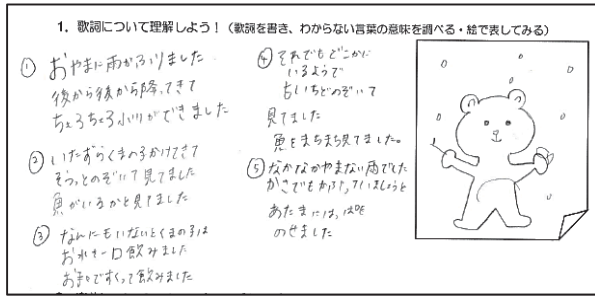 1. 歌詞について理解しよう!(歌詞を書き、わからない言葉の意味を調べる・絵で表してみる)
① おやまに雨がふりました
後から後から降ってきて
ちょろちょろ小川ができました
② いたずらくまの子かけてきて
そうっとのぞいて見てました
魚がいるかと見てました
③ なんにもいないとくまの子は
お水を一口飲みました
お手てですくって飲みました
④ それでもどこかに
いるようで
もいちどのぞいて
見てました
魚をまちまち見てました。
⑤ なかなかやまない雨でした
かさでもかぶっていましょうと
あたまに
のせました